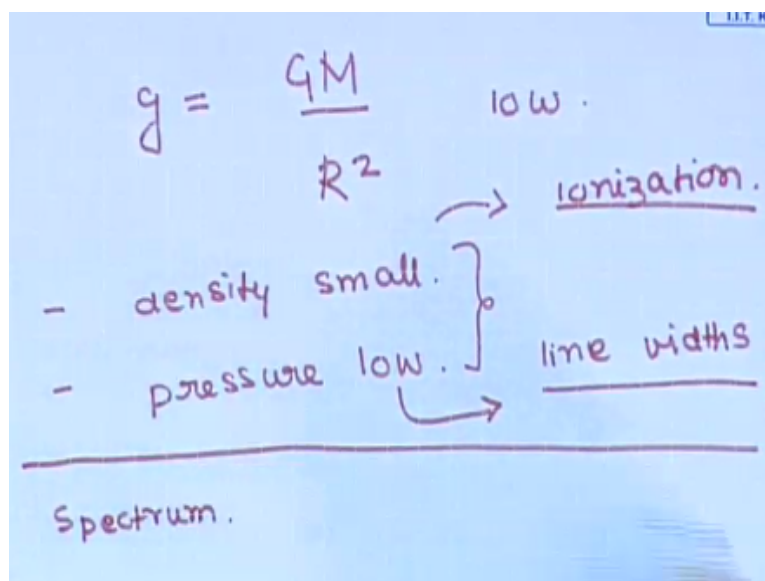 I.I.T.
g = GM / R² low.
→ ionization.
- density small.
- pressure low. → line widths
Spectrum.